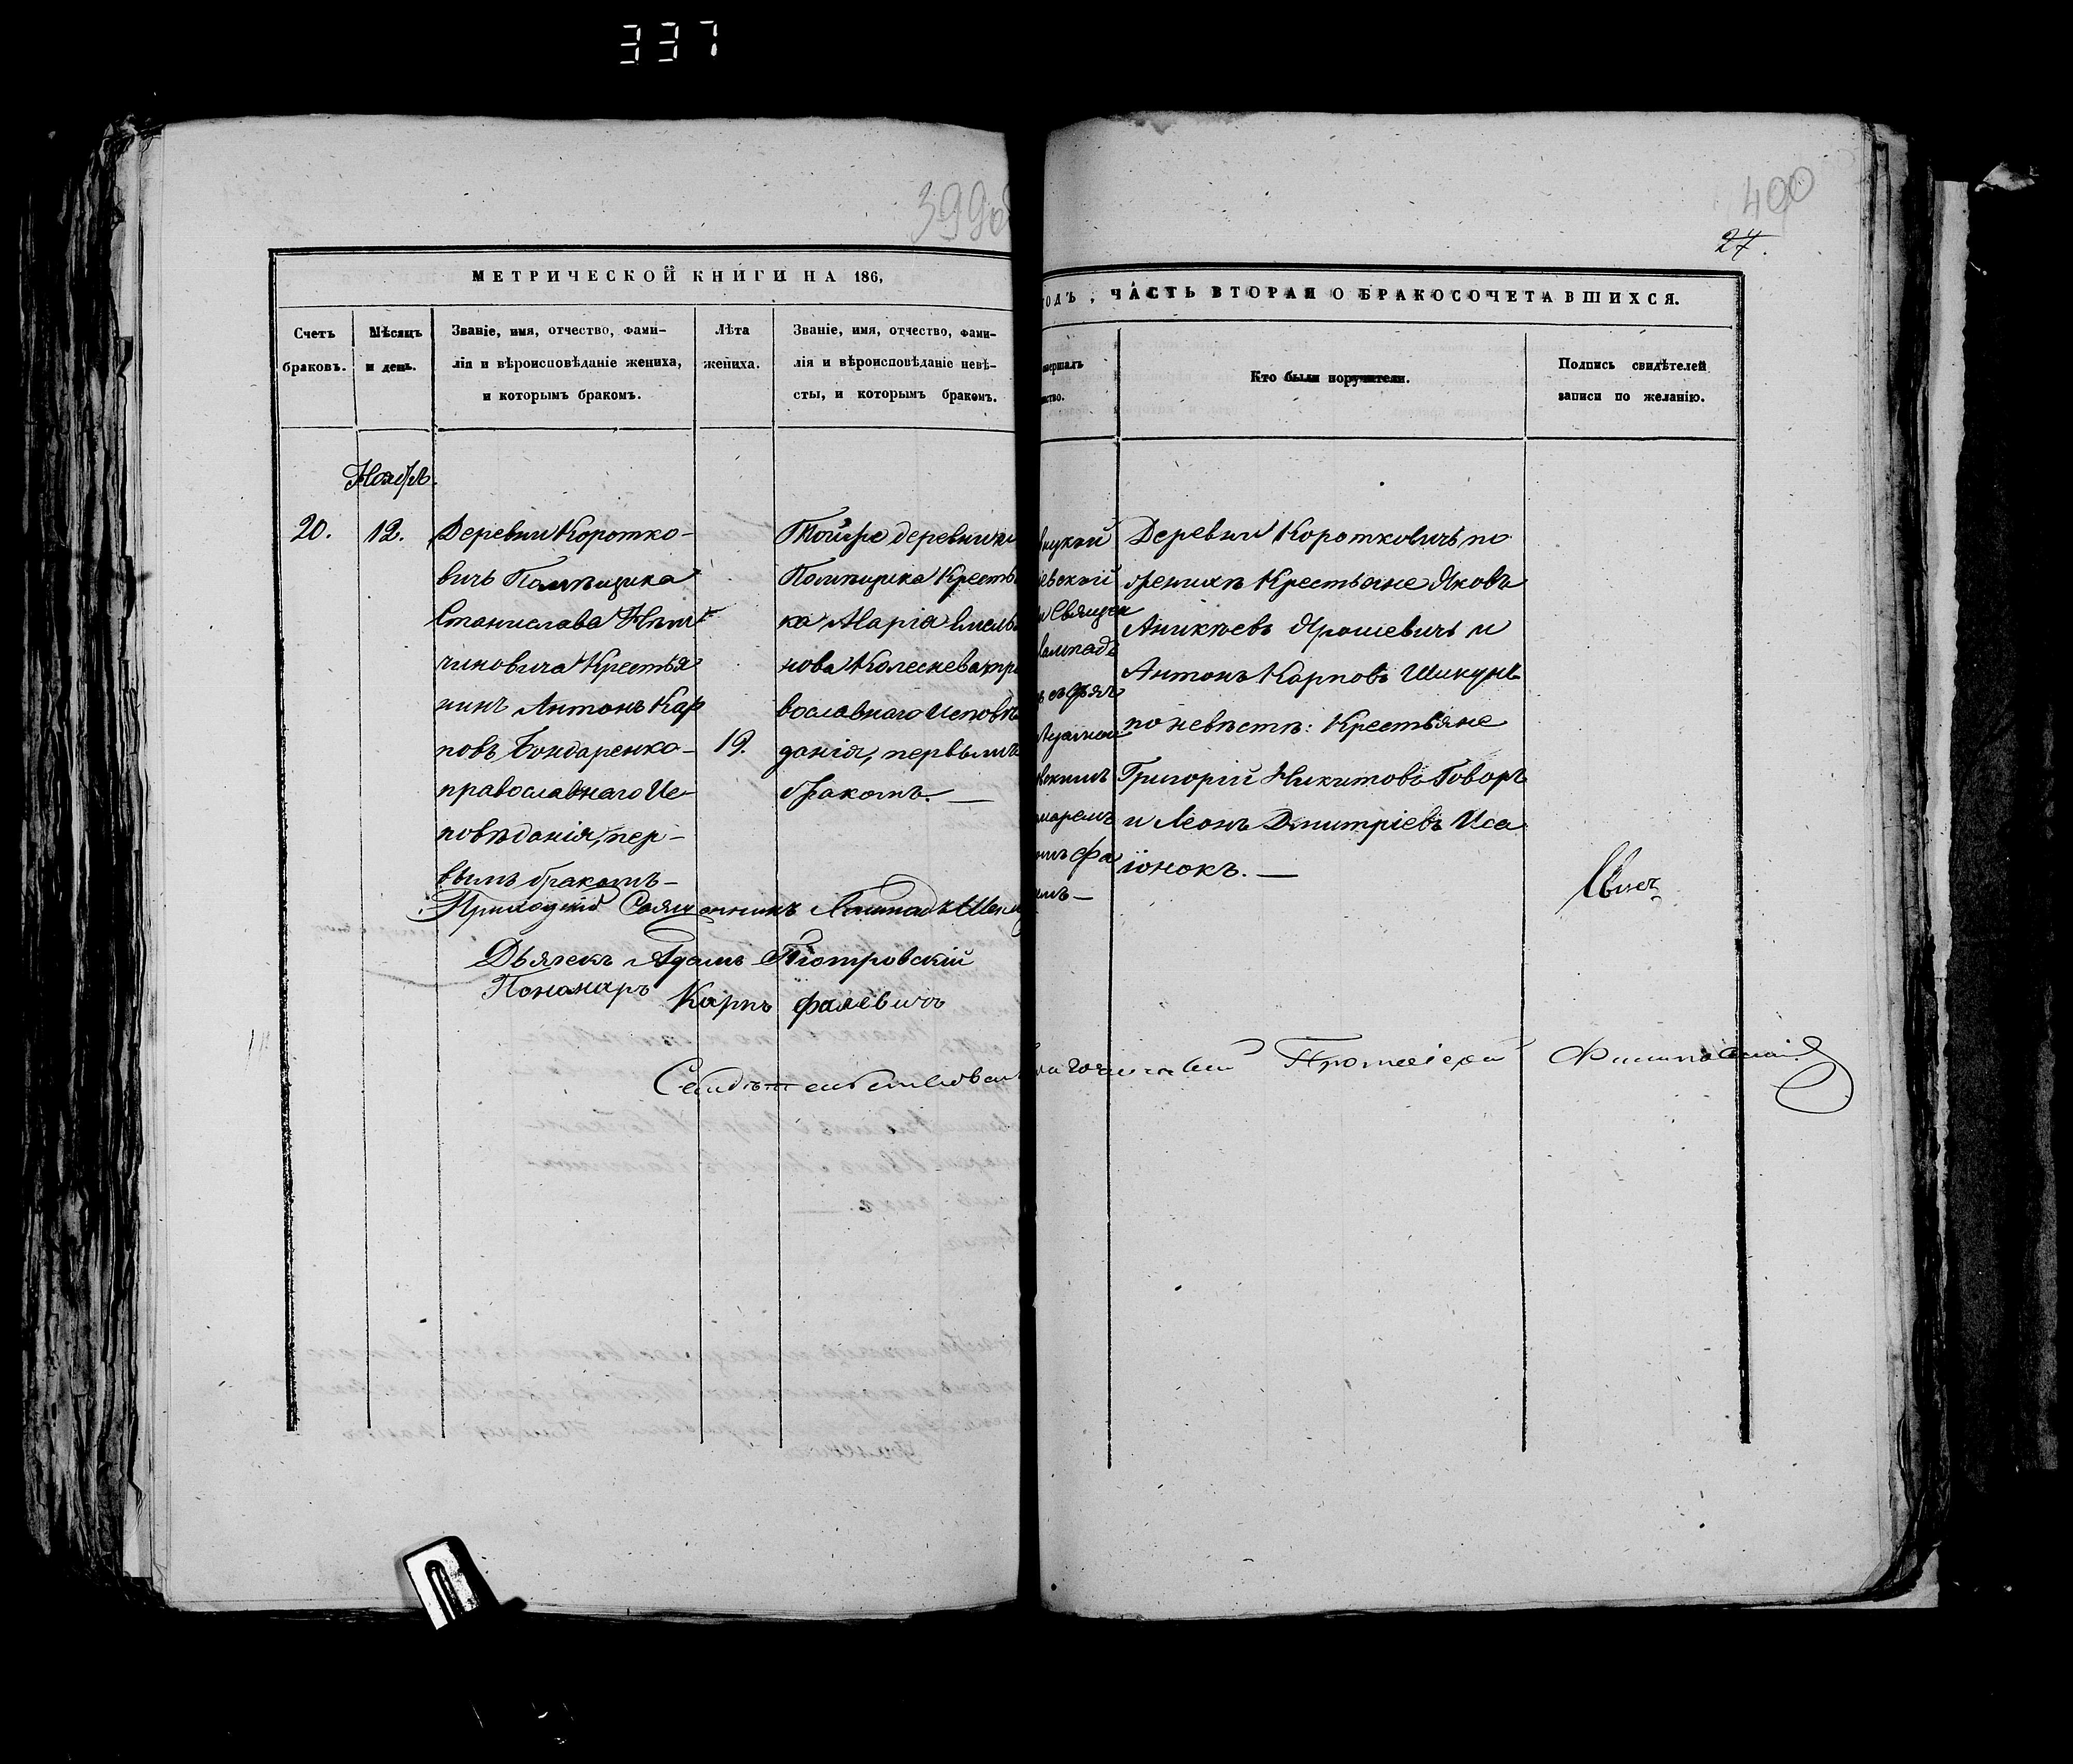 337
399об
400
27.
МЕТРИЧЕСКОЙ КНИГИ НА 186,
годъ, ЧАСТЬ ВТОРАЯ О БРАКОСОЧЕТАВШИХСЯ.
Счетъ браковъ.
Мѣсяцъ и день.
Званіе, имя, отчество, фами-
лія и вѣроисповѣданіе жениха,
и которымъ бракомъ.
Лѣта
жениха.
Званіе, имя, отчество, фами-
лія и вѣроисповѣданіе невѣ-
сты, и которымъ бракомъ.
Кто были поручители.
Подпись свидѣтелей
записи по желанію.
Ноябрь.
20.
12.
Деревни Коротко-
вичъ Помѣщика
Станислава Нѣм
чиновича Крестья
нинъ Антонъ Кар
повъ Бондаренко-
православнаго Ис-
повѣданія, пер-
вымъ бракомъ-
19.
Тойже деревни
Помѣщика Крестья
ка Марія Емелья
нова Колеснева пра
вославнаго Исповѣ
данія, первымъ
бракомъ. —
Священ
съ Дьяч
Фа
Деревни Коротковичъ по
женихѣ Крестьяне Яковъ
Аникѣевъ Ярошевичъ и
Антонъ Карповъ Шикунъ
по невѣстѣ: Крестьяне
Григорій Никитовъ Говоръ
и Леонъ Дмитріевъ Иса
іонокъ. —
Приходскій Священникъ
Дьячекъ Адамъ Піотровскій
Пономарь Карпъ Фалевичъ
Свидѣтельствовалъ Благочинный Протоіерей